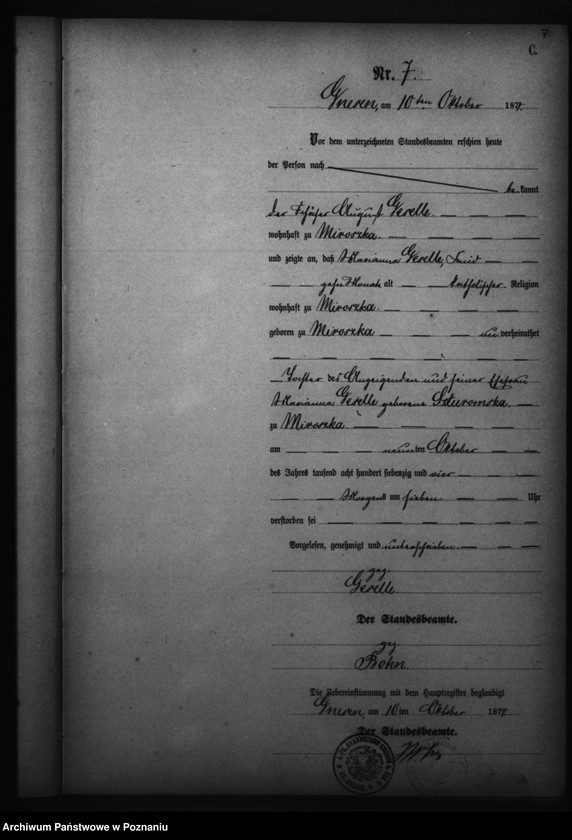 7
C.
Nr. 7.
Gneren, am 10ten Oktober 1874.
Vor dem unterzeichneten Standesbeamten erschien heute
der Person nach
be kannt
der Schäfer August Gerelle.
wohnhaft zu Miroszka.
und zeigte an, daß Marianna Gerelle, Kind
zehn Monate alt katholischer Religion
wohnhaft zu Miroszka.
geboren zu Miroszka un verheirathet
Tochter des Anzeigenden und seiner Ehefrau
Marianna Gerelle geborene
zu Miroszka
am neunten Oktober
des Jahres tausend acht hundert siebenzig und vier
Morgens um sieben Uhr
verstorben sei
Vorgelesen, genehmigt und unterschrieben.
gez.
Gerelle
Der Standesbeamte.
gez
Bohn.
Die Uebereinstimmung mit dem Hauptregister beglaubigt
Gneren, am 10ten Oktober 1874.
Der Standesbeamte.
Archiwum Państwowe w Poznaniu